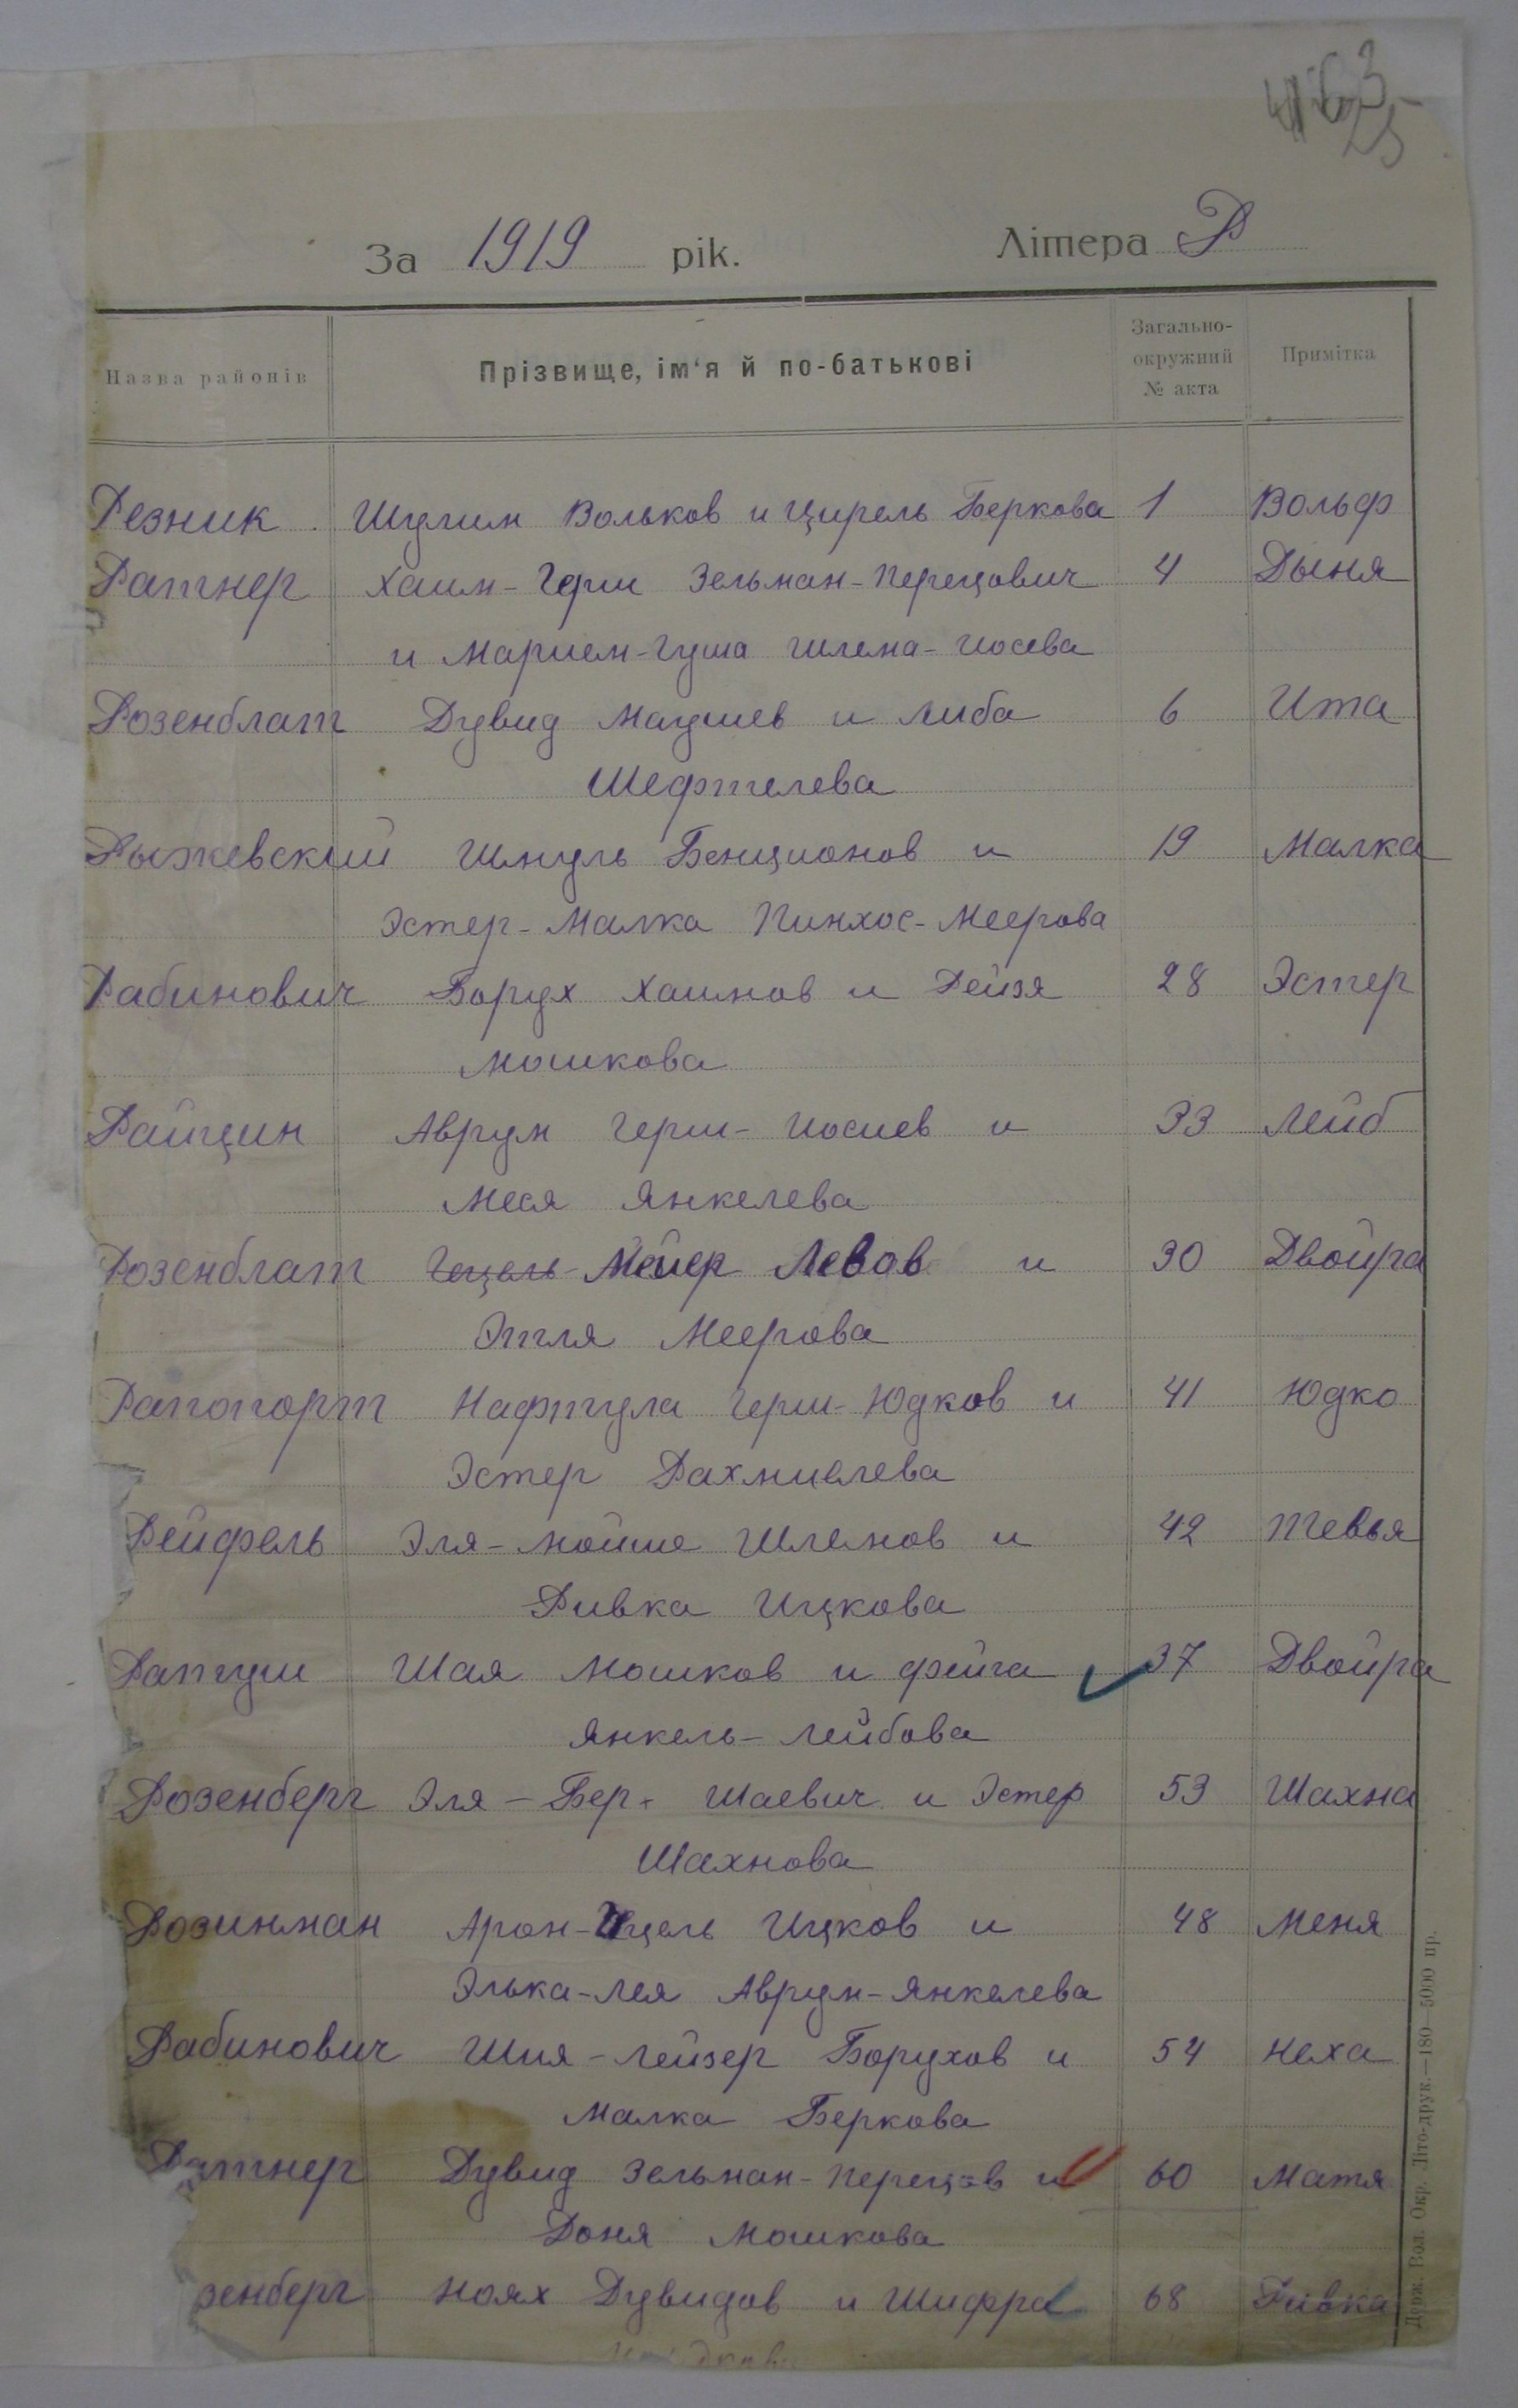 За 1919 рік. Літера Р
Назва районів Прізвище, ім'я й по-батькові Загально-окружний № акта Примітка
Резник Шулим Вольков и Цирель Беркова 1 Вольф
Ратнер Хаим-Герш Зельман-Перецович 4 Дыня
и Марием-Гуша Шлема-Иосева
Розенблат Дувид Маушев и Либа 6 Ита
Шефтелева
Рыжевский Шмуль Бенционов и 19 Малка
Эстер-Малка Пинхос-Меерова
Рабинович Борух Хаимов и Рейзя 28 Эстер
Мошкова
Райцин Аврум Герш-Иосиев и 33 Лейб
Меся Янкелева
Розенблат Гецель-Мейер Левов и 30 Двойра
Этля Меерова
Рапопорт Нафтула Герш-Юдков и 41 Юдко
Эстер Рахмиелева
Рейфель Эля-Мойше Шлемов и 42 Тевья
Ривка Ицкова
Ратуш Шая Мошков и Фейга 37 Двойра
Янкель-Лейбова
Розенберг Эля-Бер. Шаевич и Эстер 53 Шахна
Шахнова
Розинман Арон-Ицель Ицков и 48 Меня
Элька-Лея Аврум-Янкелева
Рабинович Шия-Лейзер Борухов и 54 Неха
Малка Беркова
Ратнер Дувид Зельман-Перецов и 60 Матя
Доня Мошкова
зенберг Ноях Дувидов и Шифра 68 Ривка
Держ. Вол. Окр. Літо-друк.—180—5000 пр.